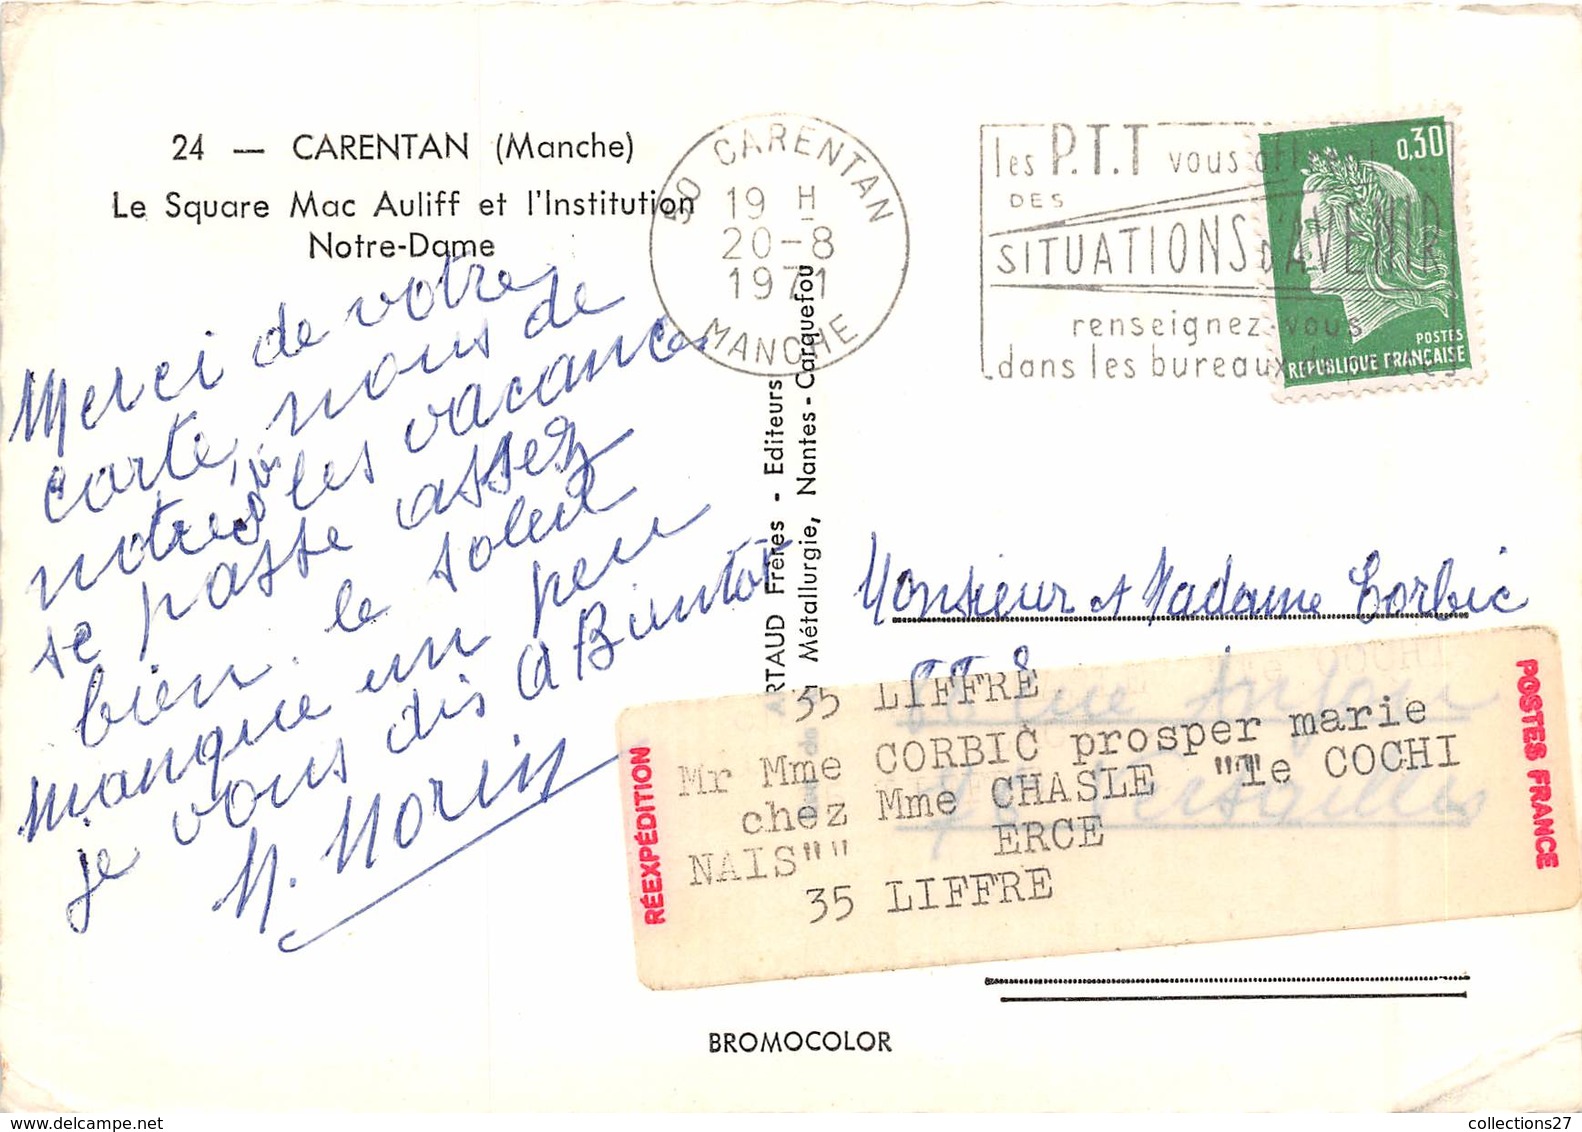 24 — CARENTAN (Manche)
Le Square Mac Auliff et l'Institution
Notre-Dame
Merci de votre
carte, nous de
notres les vacances
se passe assez
bien. le soleil
manque un peu
je vous dis a Bientôt
M. Morin
50 CARENTAN
19 H
20-8
1971
MANCHE
les P.T.T vous offrent
DES
SITUATIONS D'AVENIR
renseignez-vous
dans les bureaux de postes
0,30
POSTES
REPUBLIQUE FRANÇAISE
ARTAUD Frères - Editeurs
de la Métallurgie, Nantes-Carquefou
Monsieur et Madame Corbic
rue Anjou
78 Versailles
RÉEXPÉDITION
35 LIFFRÉ
Mr Mme CORBIC prosper marie
chez Mme CHASLE "Le COCHI
NAIS"" ERCE
35 LIFFRE
POSTES FRANCE
BROMOCOLOR
collections27